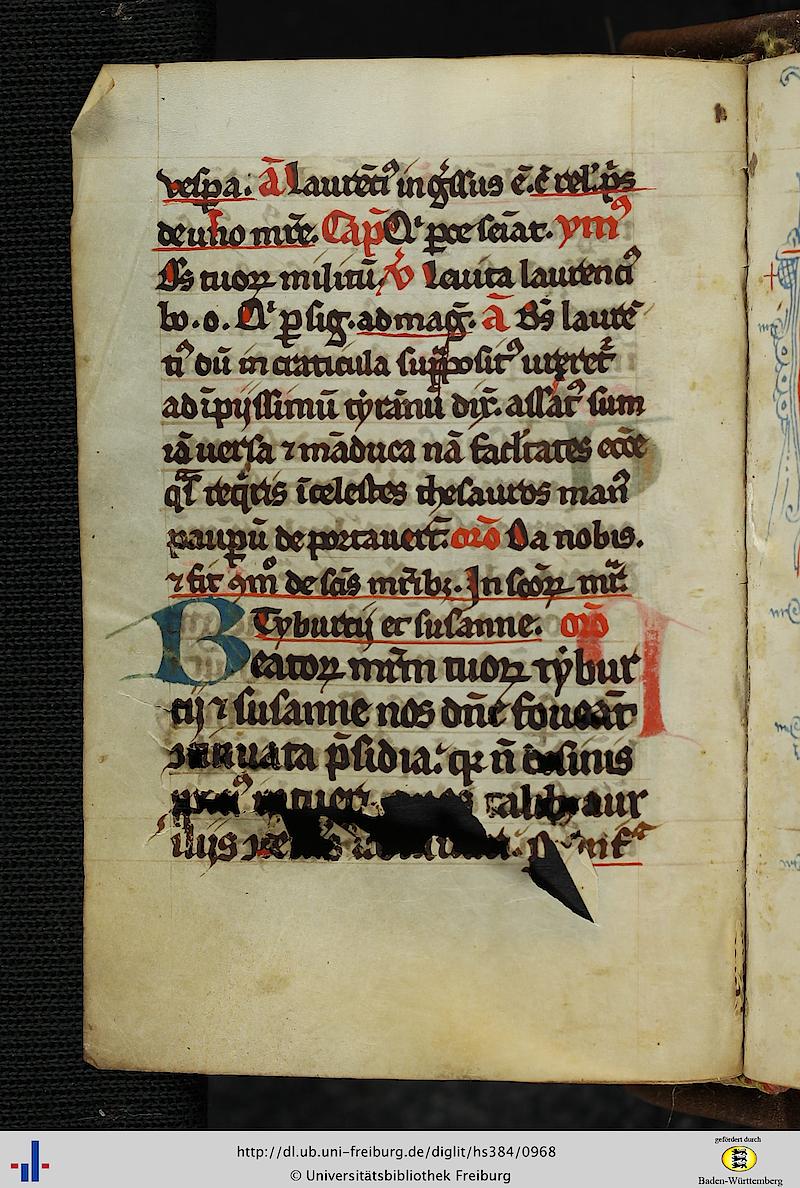 vespa. A̅ laurẽtiꝰ in gͥssus ē. & rel. pͥs
de uño mr̃e. Cap̃ Qͥ parce seiat. ymꝰ
ds̃ tuoꝝ militũ. v̾ Leuita laurenciꝰ
bo. o. Qͥ ꝑ sig. ad mag̃. A̅ Bs̃ laurẽ
tiꝰ dũ in craticula suꝑpositꝰ ureret᷑
ad īpijssimũ tyrãnũ dix̃. assatꝰ sum
iã uersa ⁊ mãduca nã facltates ecc̃e
q̃s reqͥris ī celestes thesauros manꝰ
pauꝑũ de portauer̃t. or̃o Da nobis.
⁊ fit 9mͦ de sc̃is mr̃ibꝫ. In sc̃oꝝ mr̃.
Tyburcij et susanne. or̃o
Beatoꝝ mr̃m tuoꝝ tybur
cij ⁊ susanne nos dñe foueãt
p̃sidia. qꝛ ñ desinis
aux
ilijs